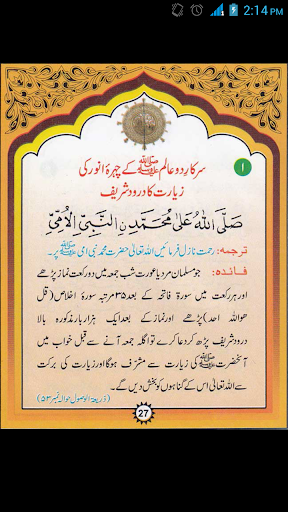 2:14 PM
۱
سرکارِ دو عالم ﷺ کے چہرۂ انور کی
زیارت کا درود شریف
صَلَّی اللّٰهُ عَلٰی مُحَمَّدِ نِ النَّبِیِّ الْاُمِّیِّ
ترجمہ: رحمت نازل فرمائیں اللہ تعالیٰ حضرت محمد نبی امی ﷺ پر۔
فائدہ: جو مسلمان مرد یا عورت شب جمعہ میں دو رکعت نماز پڑھے
اور ہر رکعت میں سورۃ فاتحہ کے بعد ۳۵ مرتبہ سورۃ اخلاص (قل
ھو اللہ احد) پڑھے اور نماز کے بعد ایک ہزار بار مذکورہ بالا
درود شریف پڑھ کر دعا کرے تو اگلا جمعہ آنے سے قبل خواب میں
آنحضرت ﷺ کی زیارت سے مشرف ہوگا اور زیارت کی برکت
سے اللہ تعالیٰ اس کے گناہوں کو بخش دیں گے۔
(ذریعۃ الوصول حوالہ نمبر ۵۳)
27